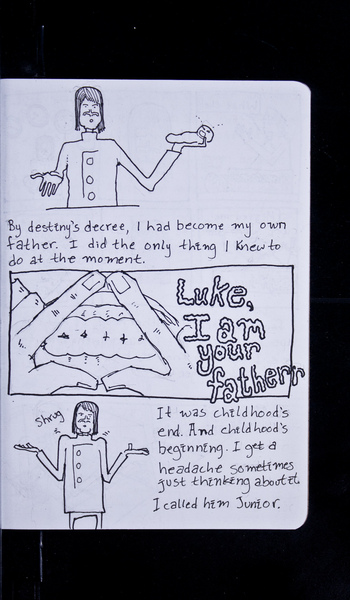 By destiny's decree, I had become my own
father. I did the only thing I knew to
do at the moment.
Luke,
I am
your
fatherr
Shrug
It was childhood's
end. And childhood's
beginning. I get a
headache sometimes
just thinking about it.
I called him Junior.